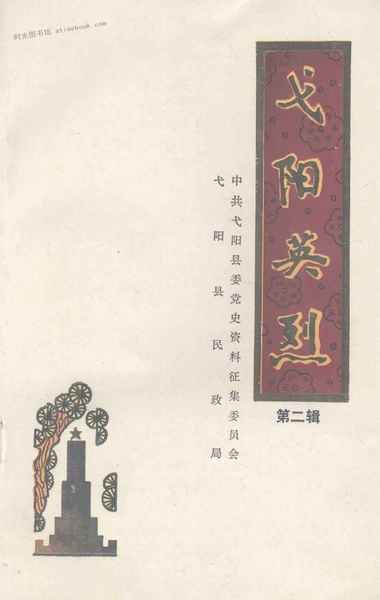 时光图书馆 atimebook.com
弋阳英烈
第二辑
中共弋阳县委党史资料征集委员会
弋阳县民政局